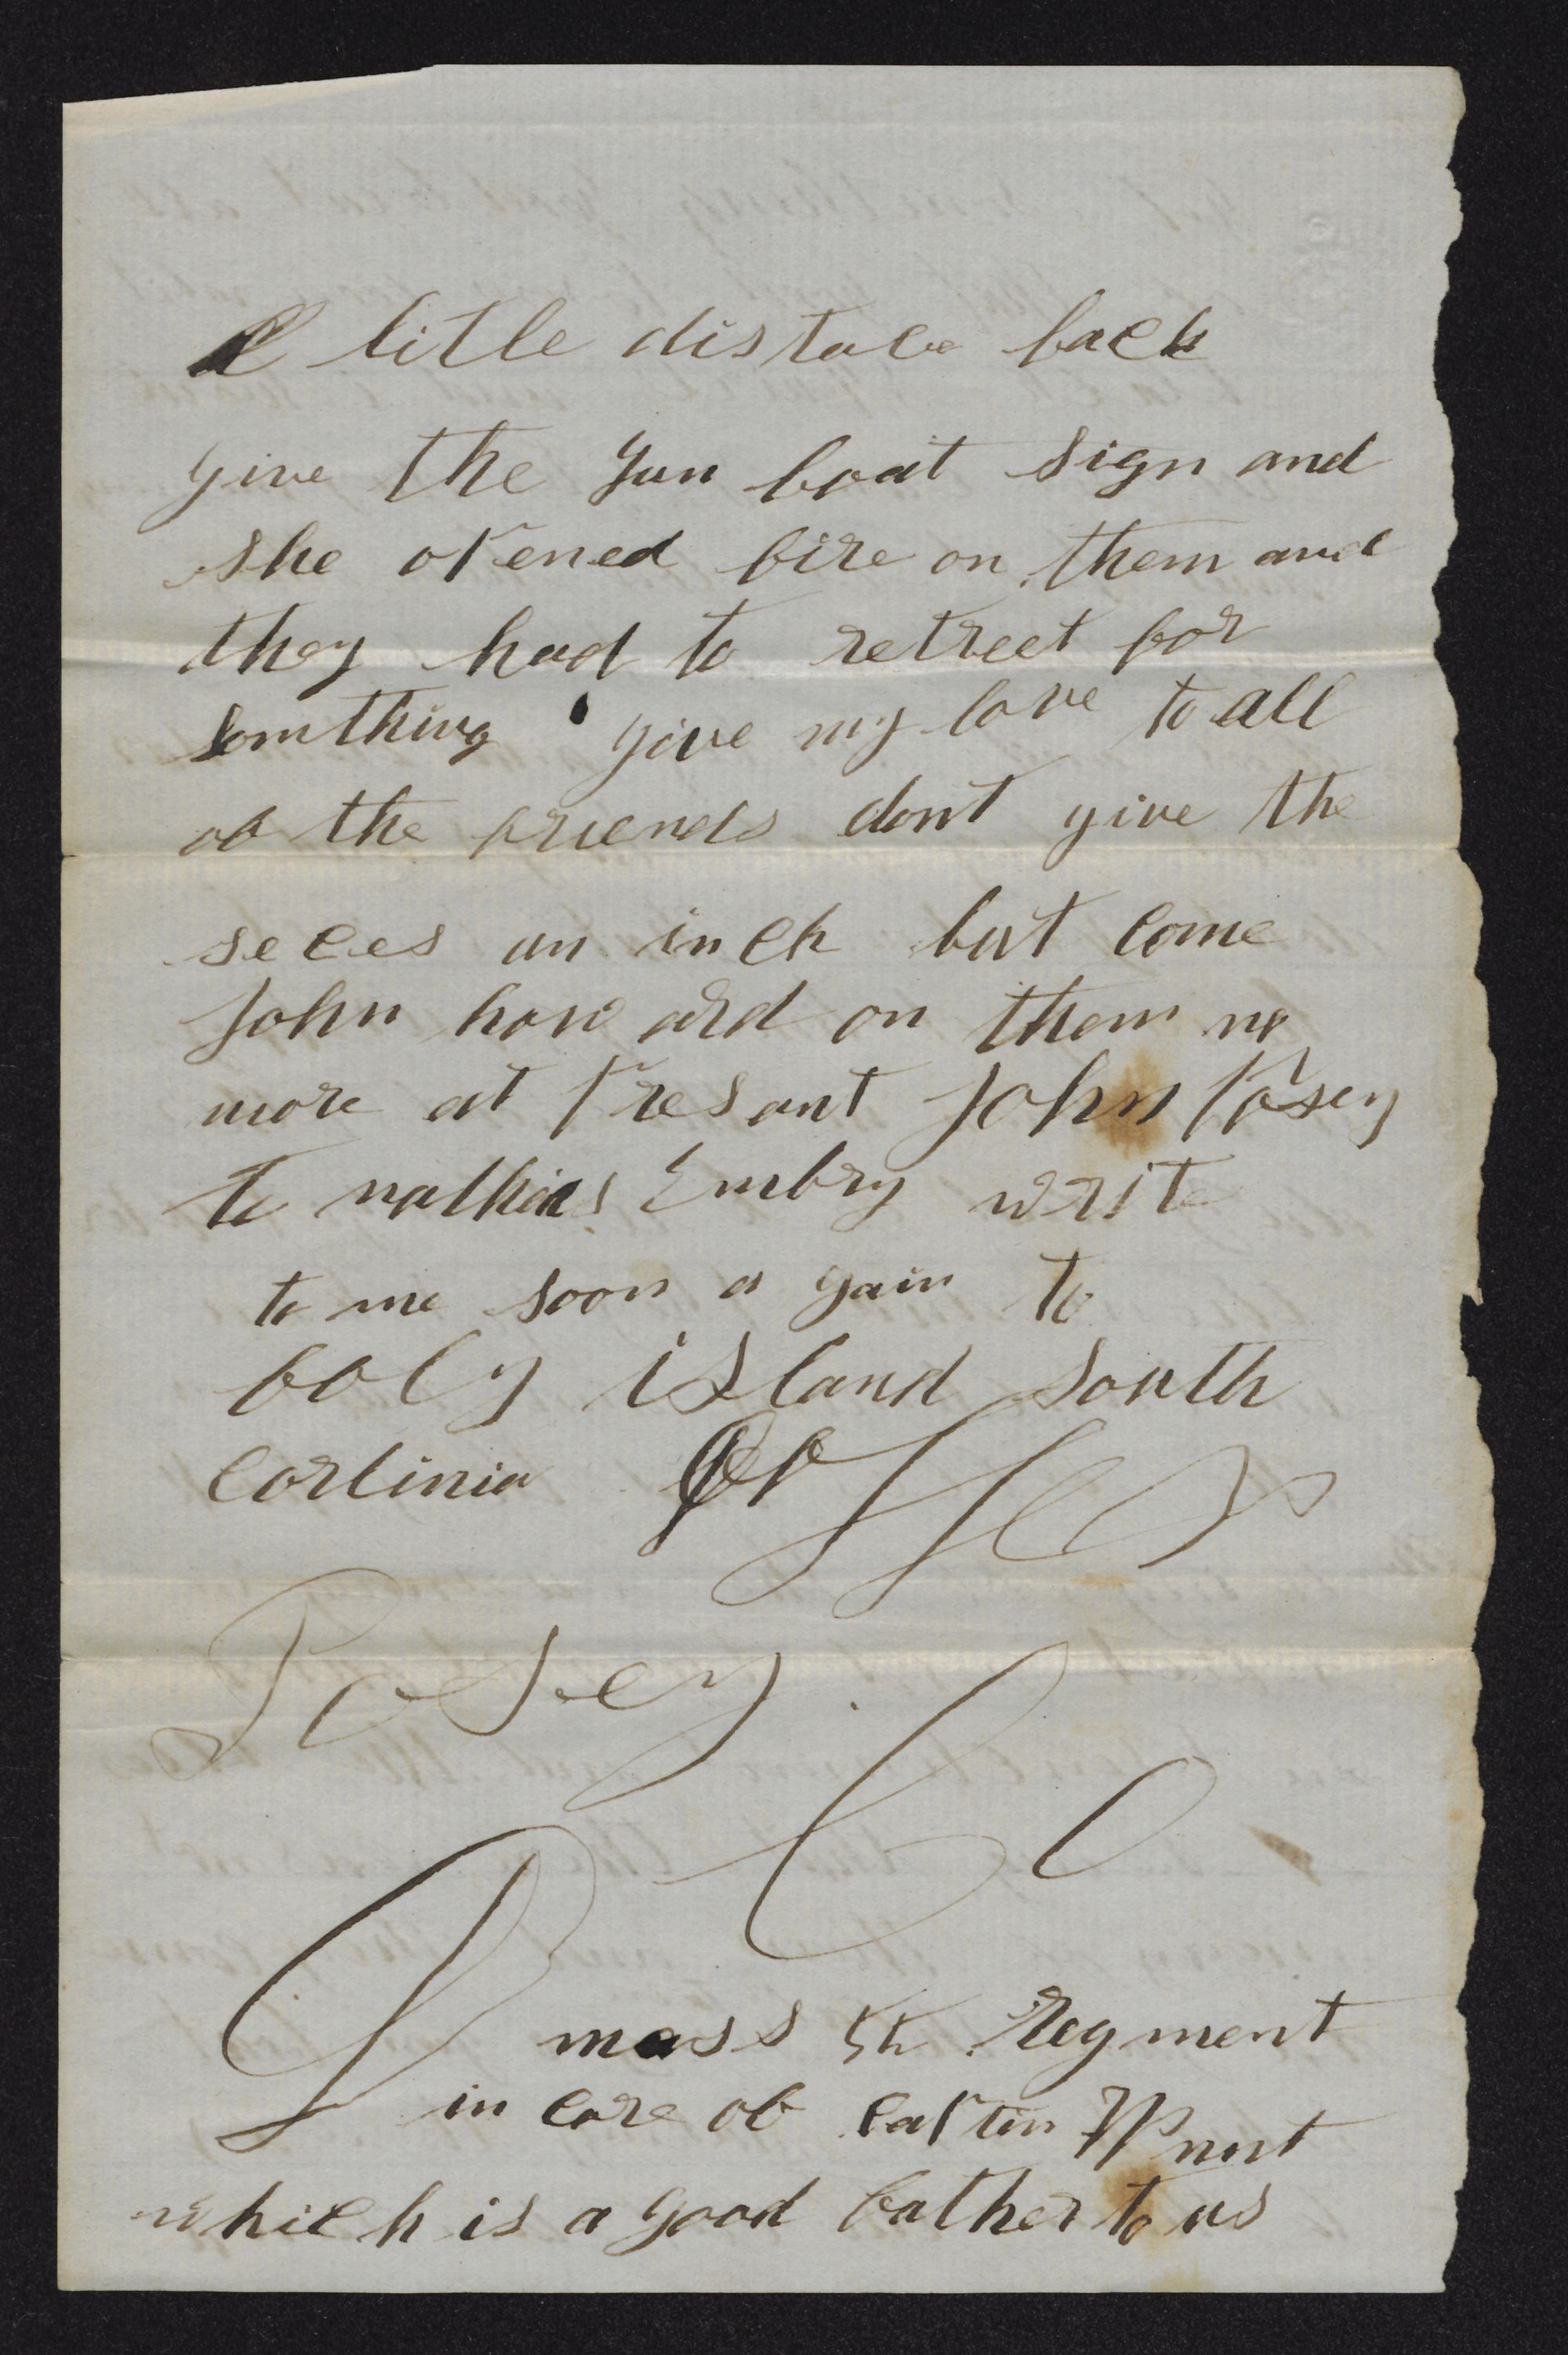 A litlle distace back
give the gun boat sign and
she opened fire on them and
they had to retreet for
somthing give my love to all
of the friends dont give the
seces an inch but come
John how ard on them no
more at presant John Posey
to mathias Embry write
to me soon a gain to
foly island south
Corlinia
Posey Co
D
mass 55 regment
in care of captin nut
which is a good father to us